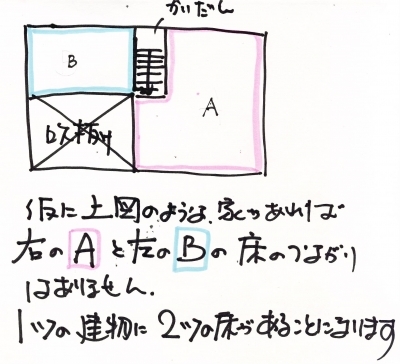 かいだん
B
A
吹き抜け
仮に上図のような家があれば
右のAと左のBの床のつながり
はありません.
1つの建物に2つの床があることになります